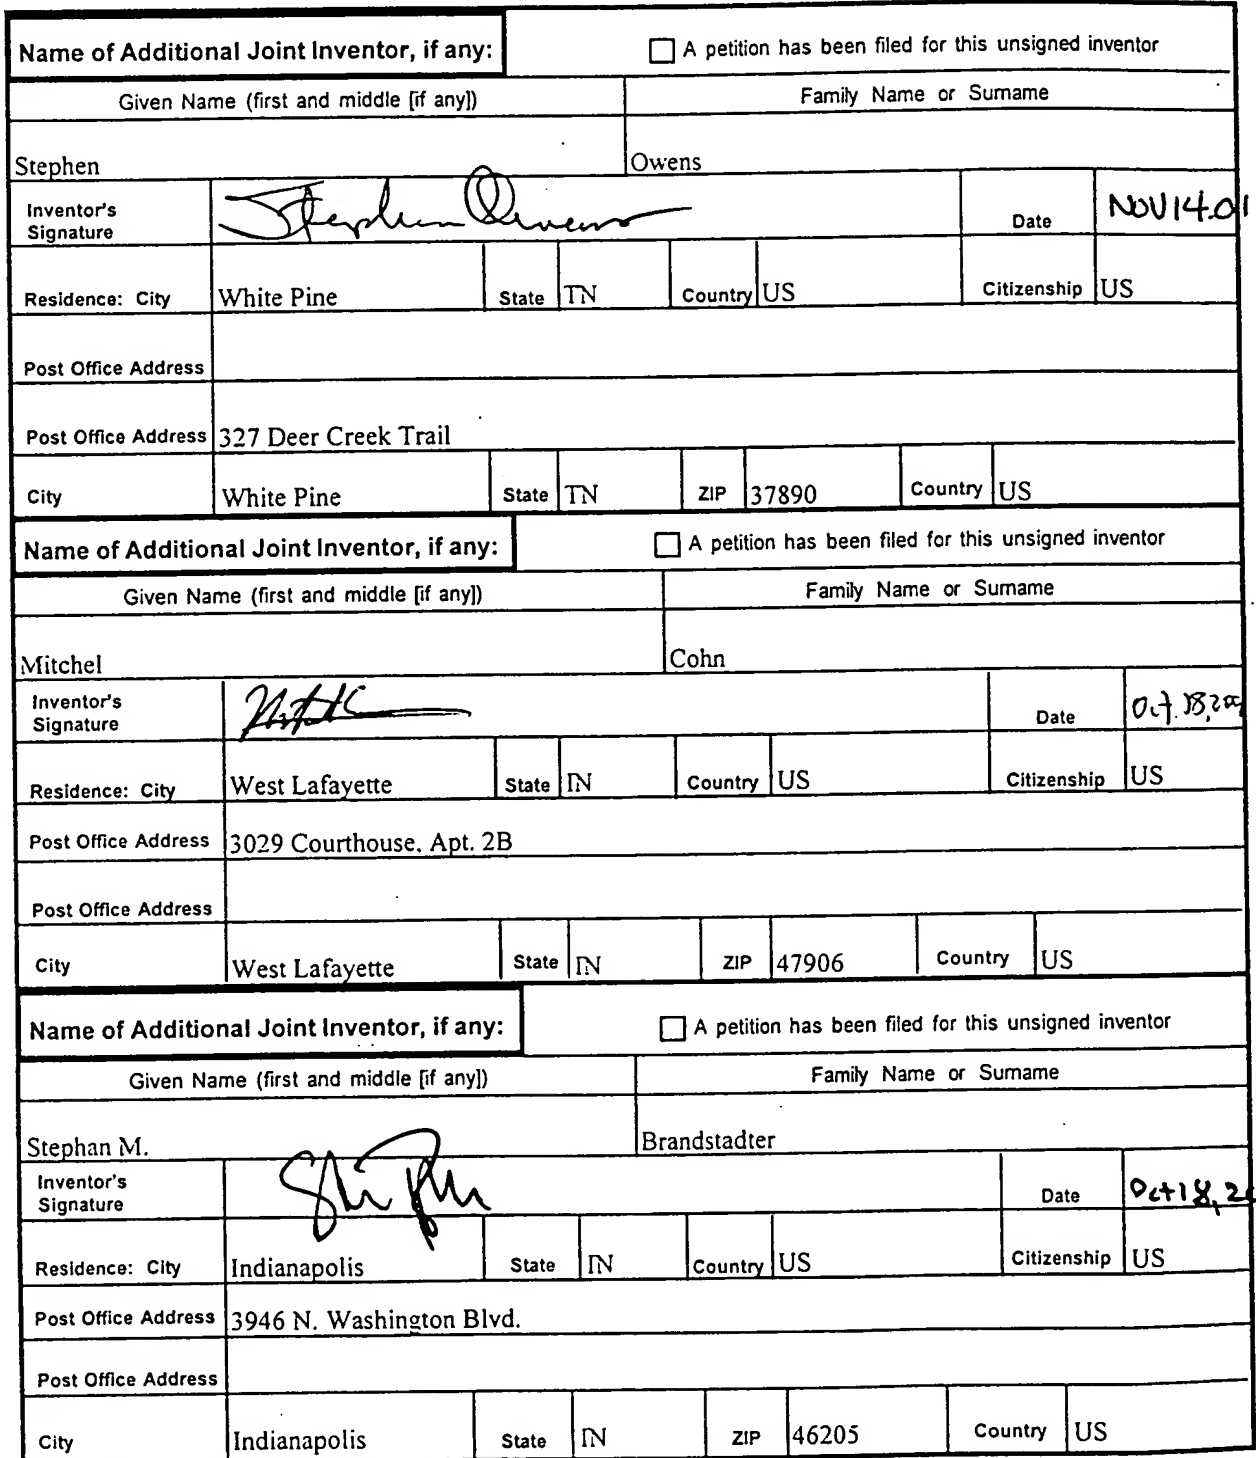 Name of Additional Joint Inventor, if any: A petition has been filed for this unsigned inventor
Given Name (first and middle [if any]) Family Name or Surname
Stephen Owens
Inventor's Signature Stephen Owens Date NOV 14.01
Residence: City White Pine State TN Country US Citizenship US
Post Office Address
Post Office Address 327 Deer Creek Trail
City White Pine State TN ZIP 37890 Country US
Name of Additional Joint Inventor, if any: A petition has been filed for this unsigned inventor
Given Name (first and middle [if any]) Family Name or Surname
Mitchel Cohn
Inventor's Signature Date Oct. 18, 200
Residence: City West Lafayette State IN Country US Citizenship US
Post Office Address 3029 Courthouse, Apt. 2B
Post Office Address
City West Lafayette State IN ZIP 47906 Country US
Name of Additional Joint Inventor, if any: A petition has been filed for this unsigned inventor
Given Name (first and middle [if any]) Family Name or Surname
Stephan M. Brandstadter
Inventor's Signature Date Oct 18, 20
Residence: City Indianapolis State IN Country US Citizenship US
Post Office Address 3946 N. Washington Blvd.
Post Office Address
City Indianapolis State IN ZIP 46205 Country US